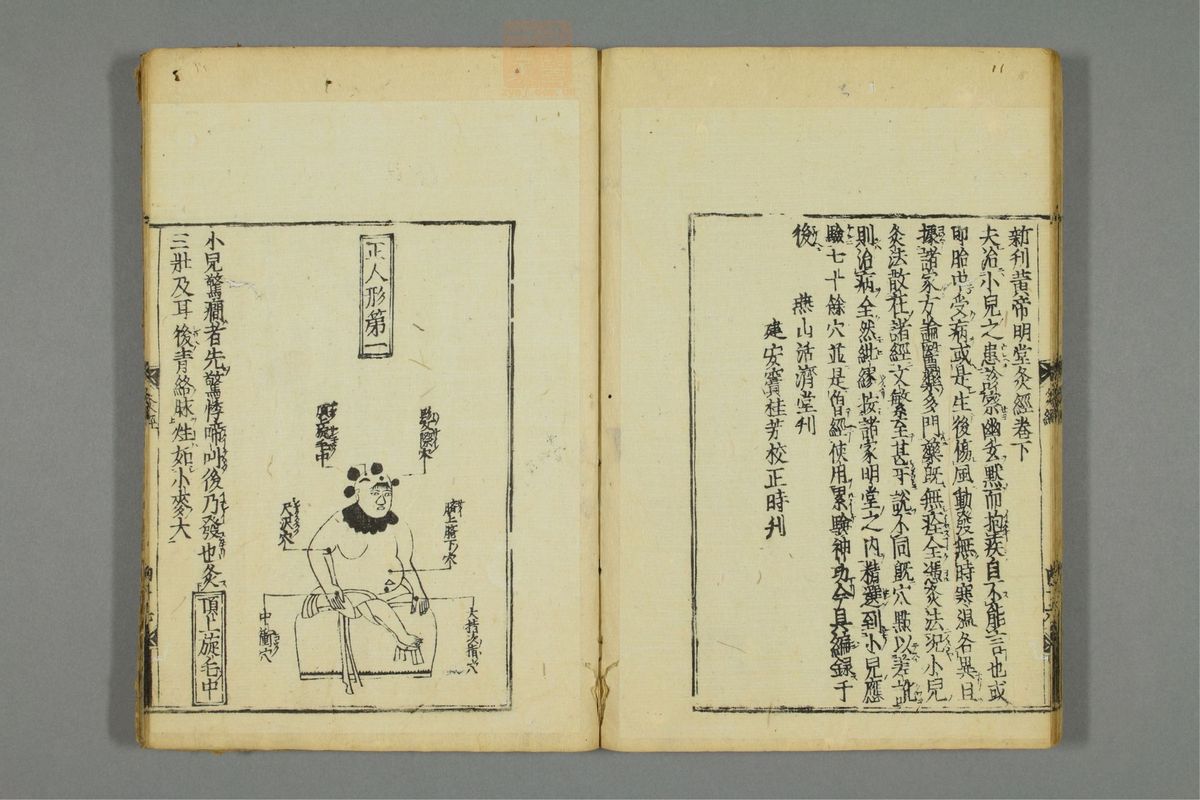 新刊黄帝明堂灸經卷下
夫治小兒之患診察幽玄默而抱疾自不能言也或
即胎中受病或是生後傷風動發無時寒温各異且
據諸家方論醫藥多門藥既無全憑灸法況小兒
灸法散在諸經文繁至甚乎說不同既穴點以差訛
則治病全然紕繆按諸家明堂之内精選到小兒應
驗七十餘穴並是曾經使用累驗神功今具編録于
後
燕山活濟堂刊
建安竇桂芳校正時刊
正人形第一
頂上旋毛中
臍上臍下穴
尺澤穴
中衝穴
大指次指穴
小兒驚癇者先驚悸啼叫後乃發也灸頂上旋毛中
三壯及耳後青絡脉炷如小麥大